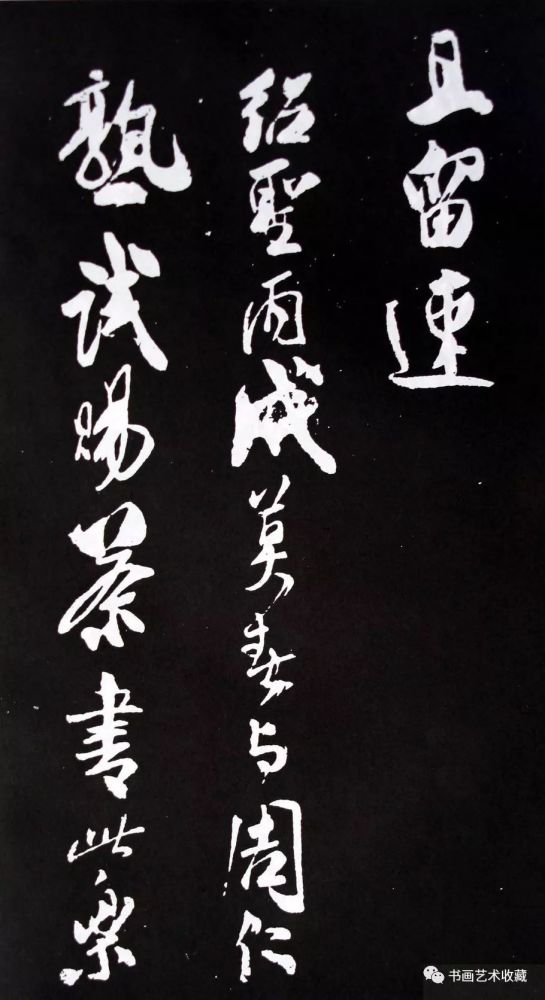 且留連
紹聖丙戌莫春与周仁
熟試賜茶書此樂
书画艺术收藏